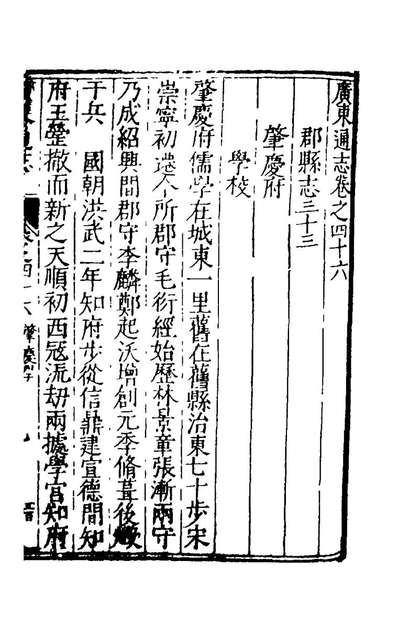 廣東通志卷之四十六
郡縣志三十三
肇慶府
學校
肇慶府儒學在城東一里舊在舊縣治東七十步宋
崇寧初遷今所郡守毛衍經始歷林景章張漸兩守
乃成紹興間郡守李麟鄭起沃增創元季脩葺後燬
于兵　國朝洪武二年知府步從信鼎建宣德間知
府王瑩撤而新之天順初西冦流刼兩據學宫知府